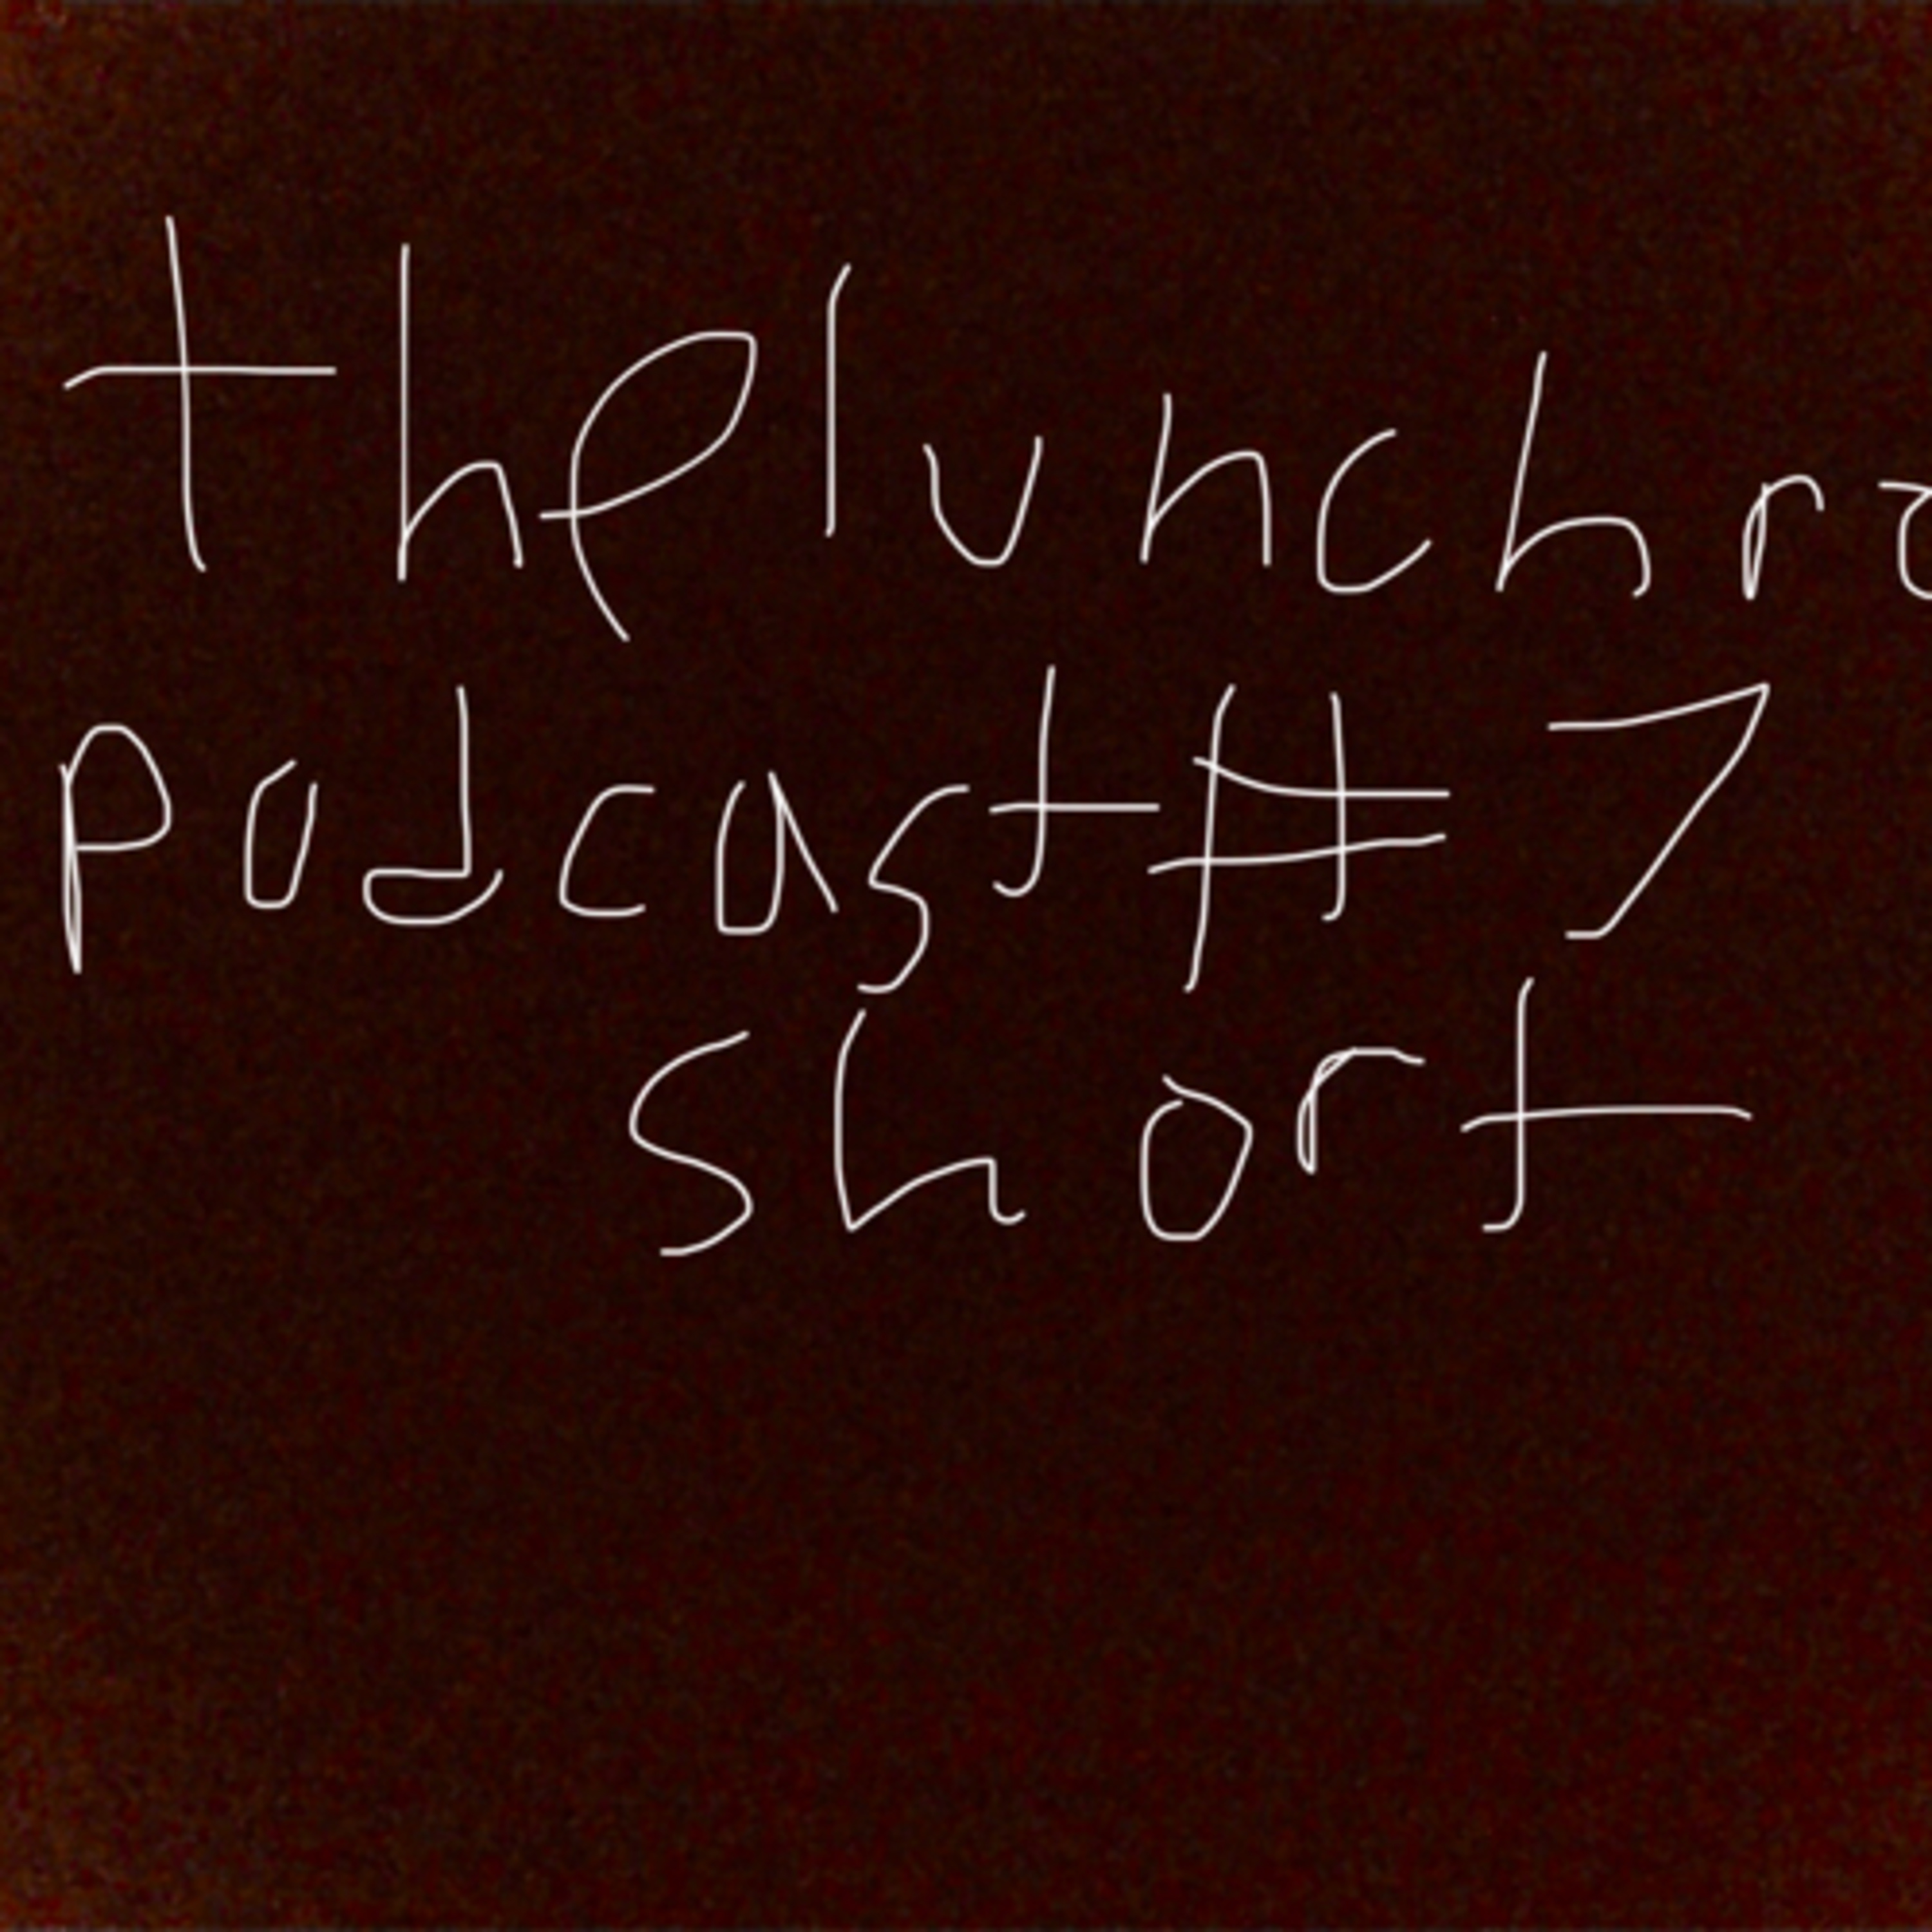 thelunchro
podcast#7
short